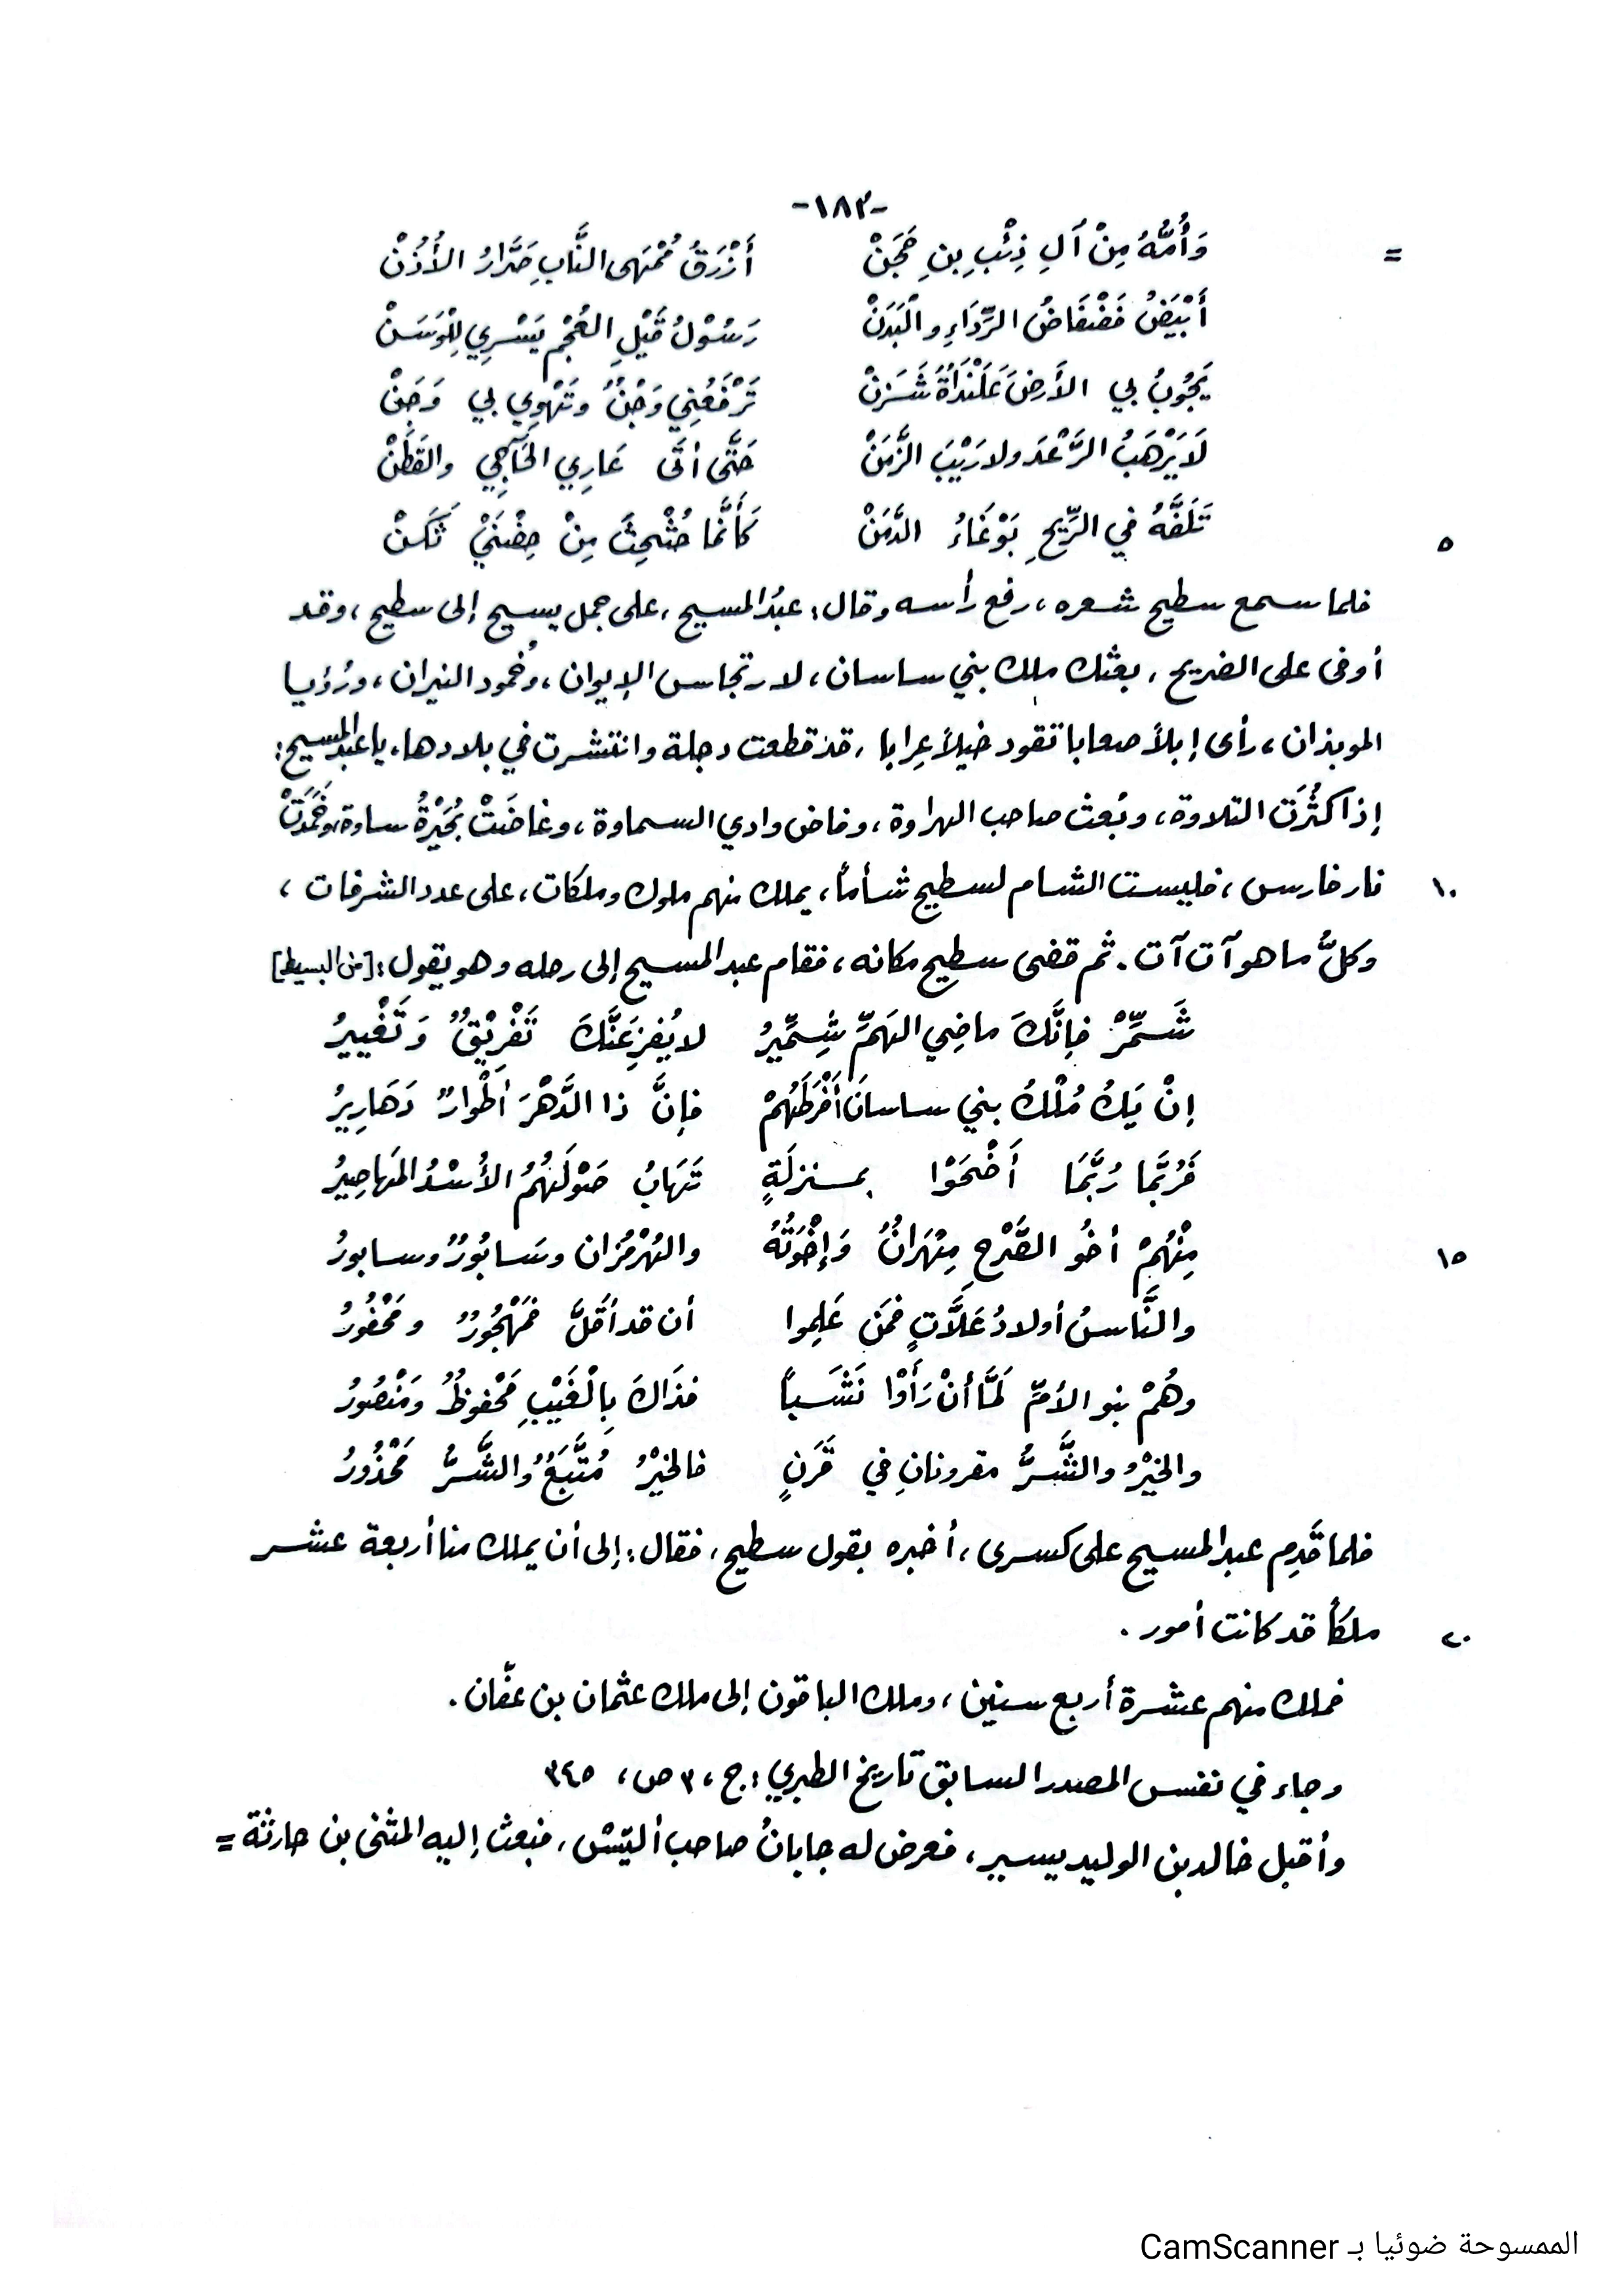 -١٨٣-
= وَأُمُّهُ مِنْ آلِ ذِئْبِ بنِ حَجَنْ أَزْرَقُ مُمْهَى النَّابِ صَرَّارُ الأُذُنْ
أَبْيَضُ فَضْفَاضُ الرِّدَاءِ والْبَدَنْ رَسُوْلُ قَيْلِ العُجْمِ يَسْرِي لِلْوَسَنْ
يَجُوبُ بي الأَرضَ عَلَنْدَاةٌ شَزَنْ تَرْفَعُنِي وَجْنٌ وتَهْوِي بي وَجَنْ
لَا يَرْهَبُ الرَّعْدَ ولا رَيْبَ الزَّمَنْ حَتَّى أتَى عَارِي الجَآجِي والقَطَنْ
٥ تَلَفَّهُ في الرِّيحِ بَوْغَاءُ الدَّمَنْ كَأَنَّمَا حُثْحِثَ مِنْ حِضْنَيْ ثَكَنْ
فلما سمع سطيح شعره، رفع رأسه وقال: عبدُ المسيح، على جمل يسيح إلى سطيح، وقد
أوفى على الضريح، بعثك ملك بني ساسان، لارتجاس الإيوان، وخُمود النيران، ورُؤيا
الموبذان، رأى إبلاً صعابا تقود خيلاً عِرابا، قد قطعت دجلة وانتشرت في بلادها، يا عبد المسيح:
إذا كثُرَت التلاوة، وبُعث صاحب الهراوة، وفاض وادي السماوة، وغاضَتْ بُحَيْرَةُ ساوة، وخَمَدَتْ
١٠ نار فارس، فليست الشام لسطيح شأماً، يملك منهم ملوك وملكات، على عدد الشرفات،
وكلُّ ما هو آت آت. ثم قضى سطيح مكانه، فقام عبد المسيح إلى رحله وهو يقول: [من البسيط]
شَمِّرْ فإنَّكَ ماضِي الهَمِّ شِمِّيرُ لا يُفزِعَنَّكَ تَفْرِيْقٌ وَتَغْييرُ
إنْ يَكُ مُلْكُ بني ساسانَ أَفْرَطَهُمْ فإنَّ ذا الدَّهْرَ أطْوارٌ دَهَارِيرُ
فَرُبَّما رُبَّمَا أَضْحَوْا بمنزلَةٍ تَهَابُ صَوْلَهُمُ الأُسْدُ المَهاصِيرُ
١٥ مِنْهُمْ أخُو الصَّرْحِ مِهْرَانٌ وَإِخْوَتُهُ والهُرْمُزان وسَابُورٌ وسابورُ
والنَّاسُ أولادُ عَلَّاتٍ فمَن عَلِموا أن قد أقَلَّ فَمَهْجُورٌ ومَحْقُورُ
وهُمْ بنو الأمِّ لَمَّا أنْ رَأَوْا نَشَباً فذَاكَ بِالْغَيْبِ مَحْفوظٌ ومَنْصُورُ
والخيْرُ والشَّرُّ مقرونانِ في قَرَنٍ فالخيْرُ مُتَّبَعٌ والشَّرُّ مَحْذُورُ
فلما قَدِم عبد المسيح على كسرى، أخبره بقول سطيح، فقال: إلى أن يملك منا أربعة عشر
٢٠ ملكاً قد كانت أمور.
فملك منهم عشرة أربع سنين، وملك الباقون إلى ملك عثمان بن عفّان.
وجاء في نفس المصدر السابق تاريخ الطبري: ج، ٣ ص، ٣٤٥
وأقبل خالد بن الوليد يسير، فعرض له جابانُ صاحب أليّسْ، فبعث إليه المثنى بن حارثة =
الممسوحة ضوئيا بـ CamScanner